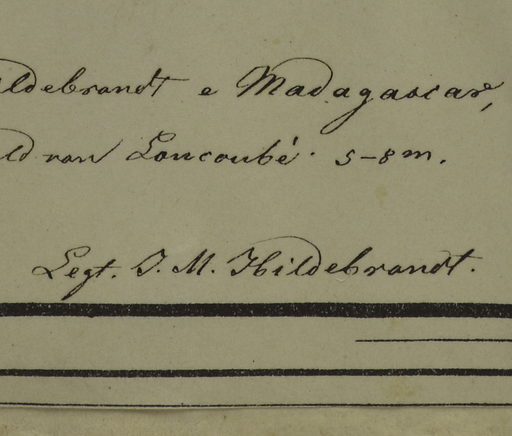 ildebrandt e Madagascar,
ld van Loucoubé. 5-8 m.
Legt. J. M. Hildebrandt.